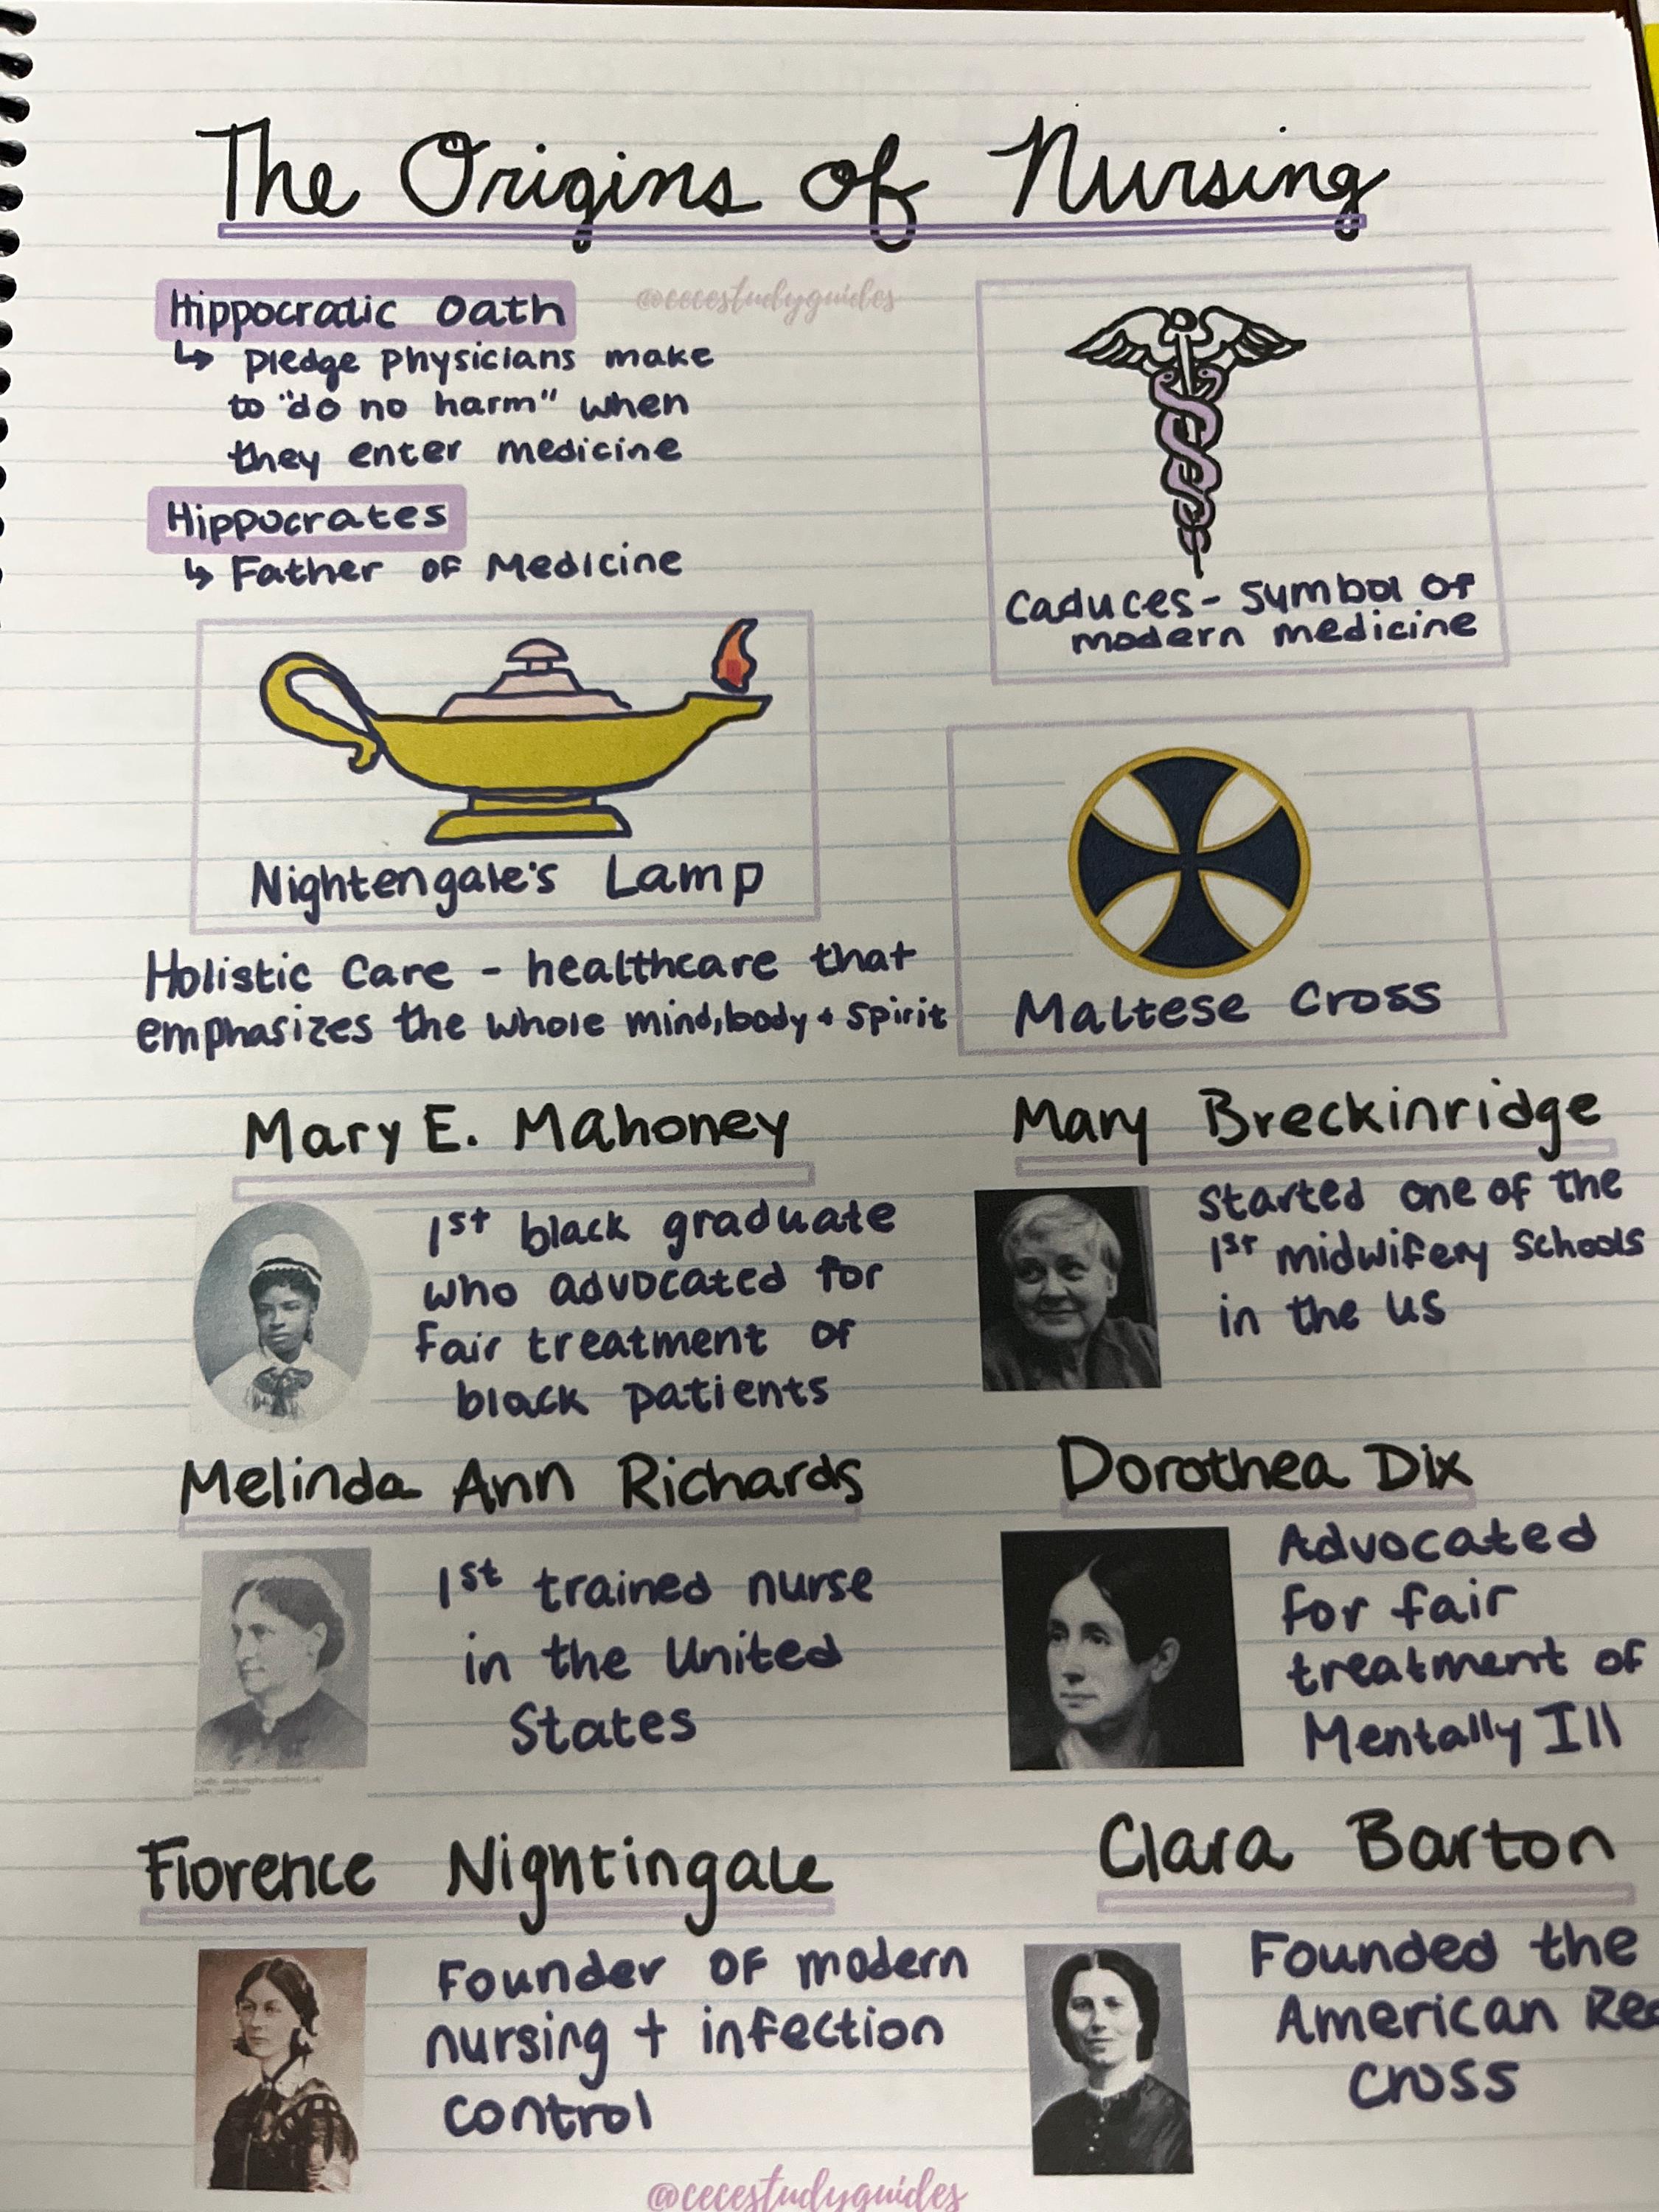 The Origins of Nursing
Hippocratic Oath
@cecestudyguides
↳ pledge physicians make
to "do no harm" when
they enter medicine
Hippocrates
↳ Father of Medicine
Caduces - symbol of
modern medicine
Nightengale's Lamp
Maltese Cross
Holistic Care - healthcare that
emphasizes the whole mind, body + spirit
Mary E. Mahoney
1st black graduate
who advocated for
fair treatment of
black patients
Mary Breckinridge
Started one of the
1st midwifery schools
in the US
Melinda Ann Richards
1st trained nurse
in the United
States
Dorothea Dix
Advocated
for fair
treatment of
Mentally Ill
Florence Nightingale
Founder of modern
nursing + infection
control
Clara Barton
Founded the
American Red
Cross
@cecestudyguides